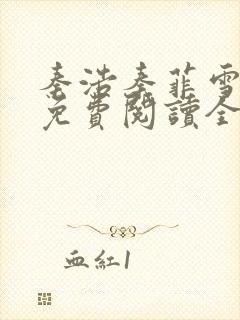 秦浩秦菲雪
免費閱讀全
血紅1